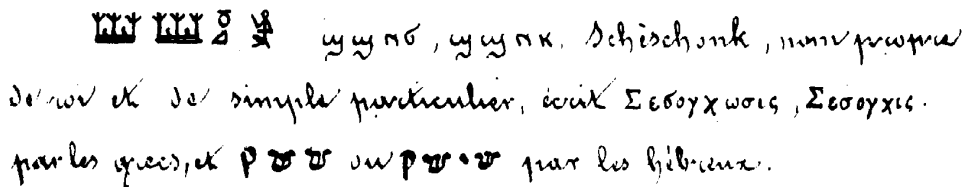 𓆷𓆷𓎼 ϣϣⲛϭ, ϣϣⲛⲕ. Schéschonk, nom propre
de roi et de simple particulier, écrit Σεσογχωσις, Σεσογχις.
par les grecs, et ששק ou שישק par les hébreux.